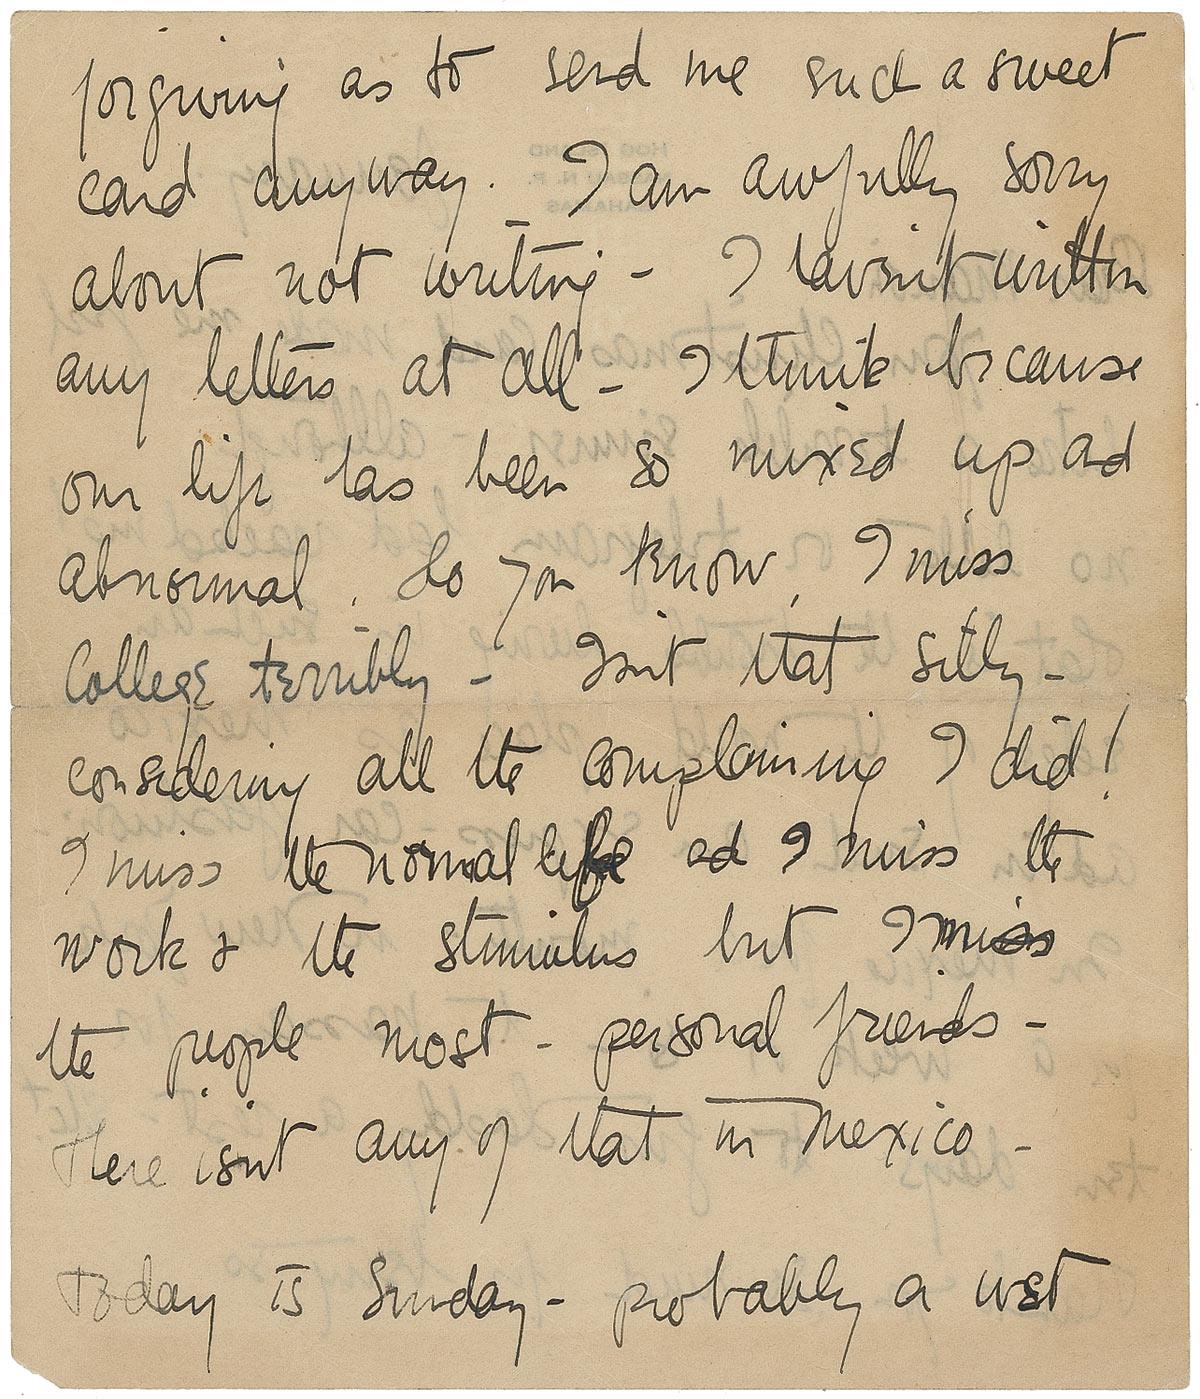 forgiving as to send me such a sweet
card anyway. I am awfully sorry
about not writing - I havn't written
any letters at all - I think because
our life has been so mixed up and
abnormal. Do you know, I miss
College terribly - Isn't that silly -
considering all the complaining I did!
I miss the normal life and I miss the
work & the stimulus but I miss
the people most - personal friends -
There isn't any of that in Mexico -
Today is Sunday - probably a wet